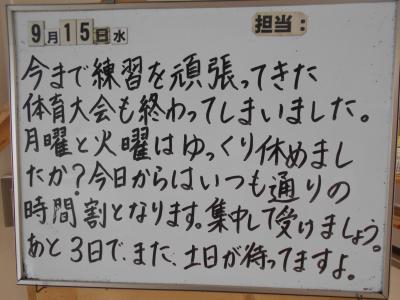 9月15日水 担当:
今まで練習を頑張ってきた
体育大会も終わってしまいました。
月曜と火曜はゆっくり休めまし
たか?今日からはいつも通りの
時間割となります。集中して受けましょう。
あと3日で、また、土日が待ってますよ。